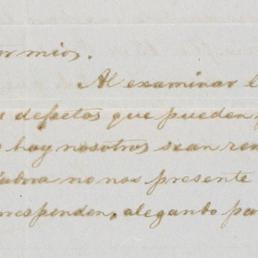 or mios.
Al examinar l
defectos que pueden
hoy nosotros sean rem
labora no nos presente
rresponden, alegando pa